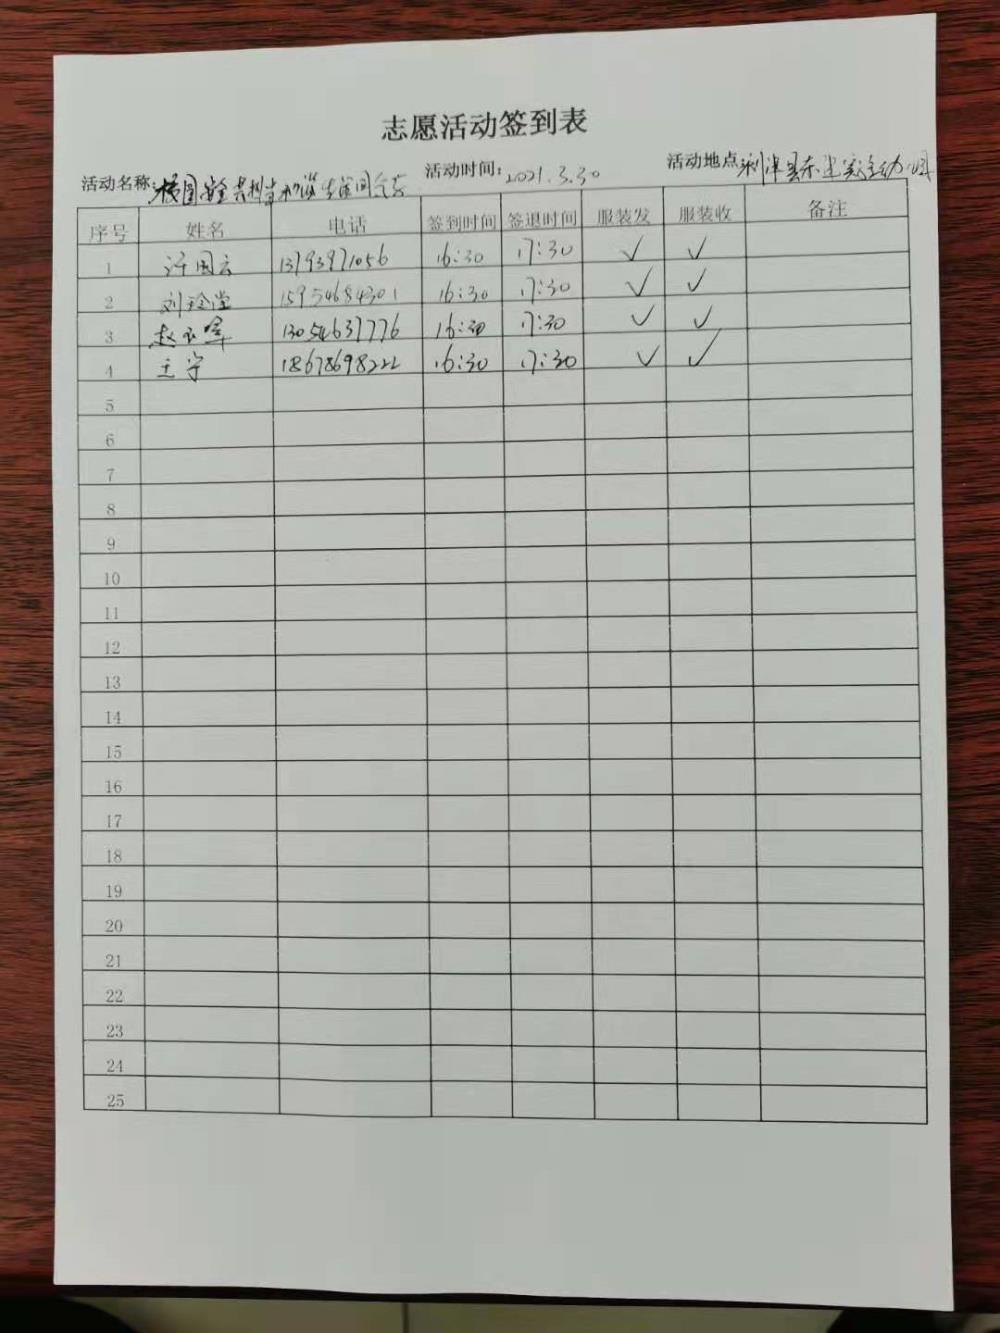 志愿活动签到表
活动名称: 校园安全 活动时间: 2021.3.30 活动地点 利津县
序号 姓名 电话 签到时间 签退时间 服装发 服装收 备注
1 许国云 13793971056 16:30 17:30 ✓ ✓
2 刘 15954684301 16:30 17:30 ✓ ✓
3 赵 13054637776 16:30 17:30 ✓ ✓
4 王宁 18678698222 16:30 17:30 ✓ ✓
5
6
7
8
9
10
11
12
13
14
15
16
17
18
19
20
21
22
23
24
25